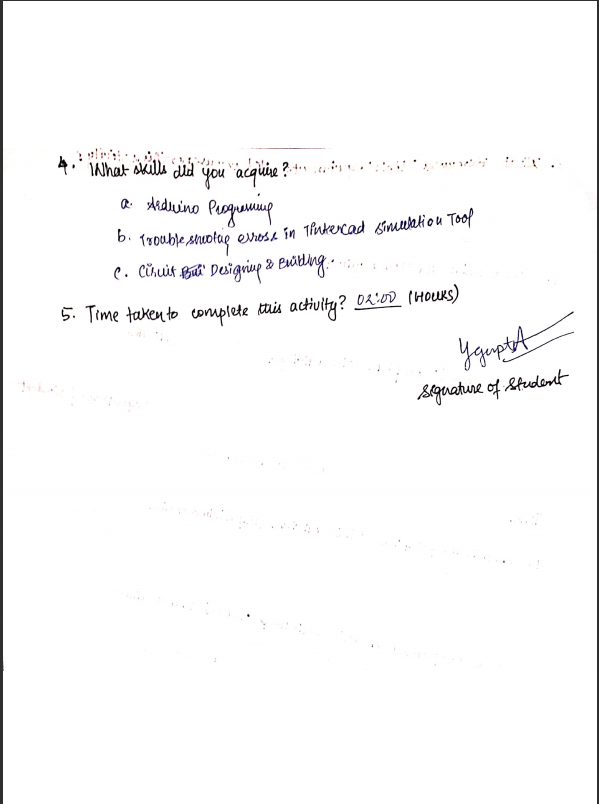 4. What skills did you acquire?
a. Arduino Programing
b. Trouble shooting errors in Tinkercad Simulation Tool
c. Circuit Designing & Building.
5. Time taken to complete this activity? 02:00 (HOURS)
YguptA
Signature of Student